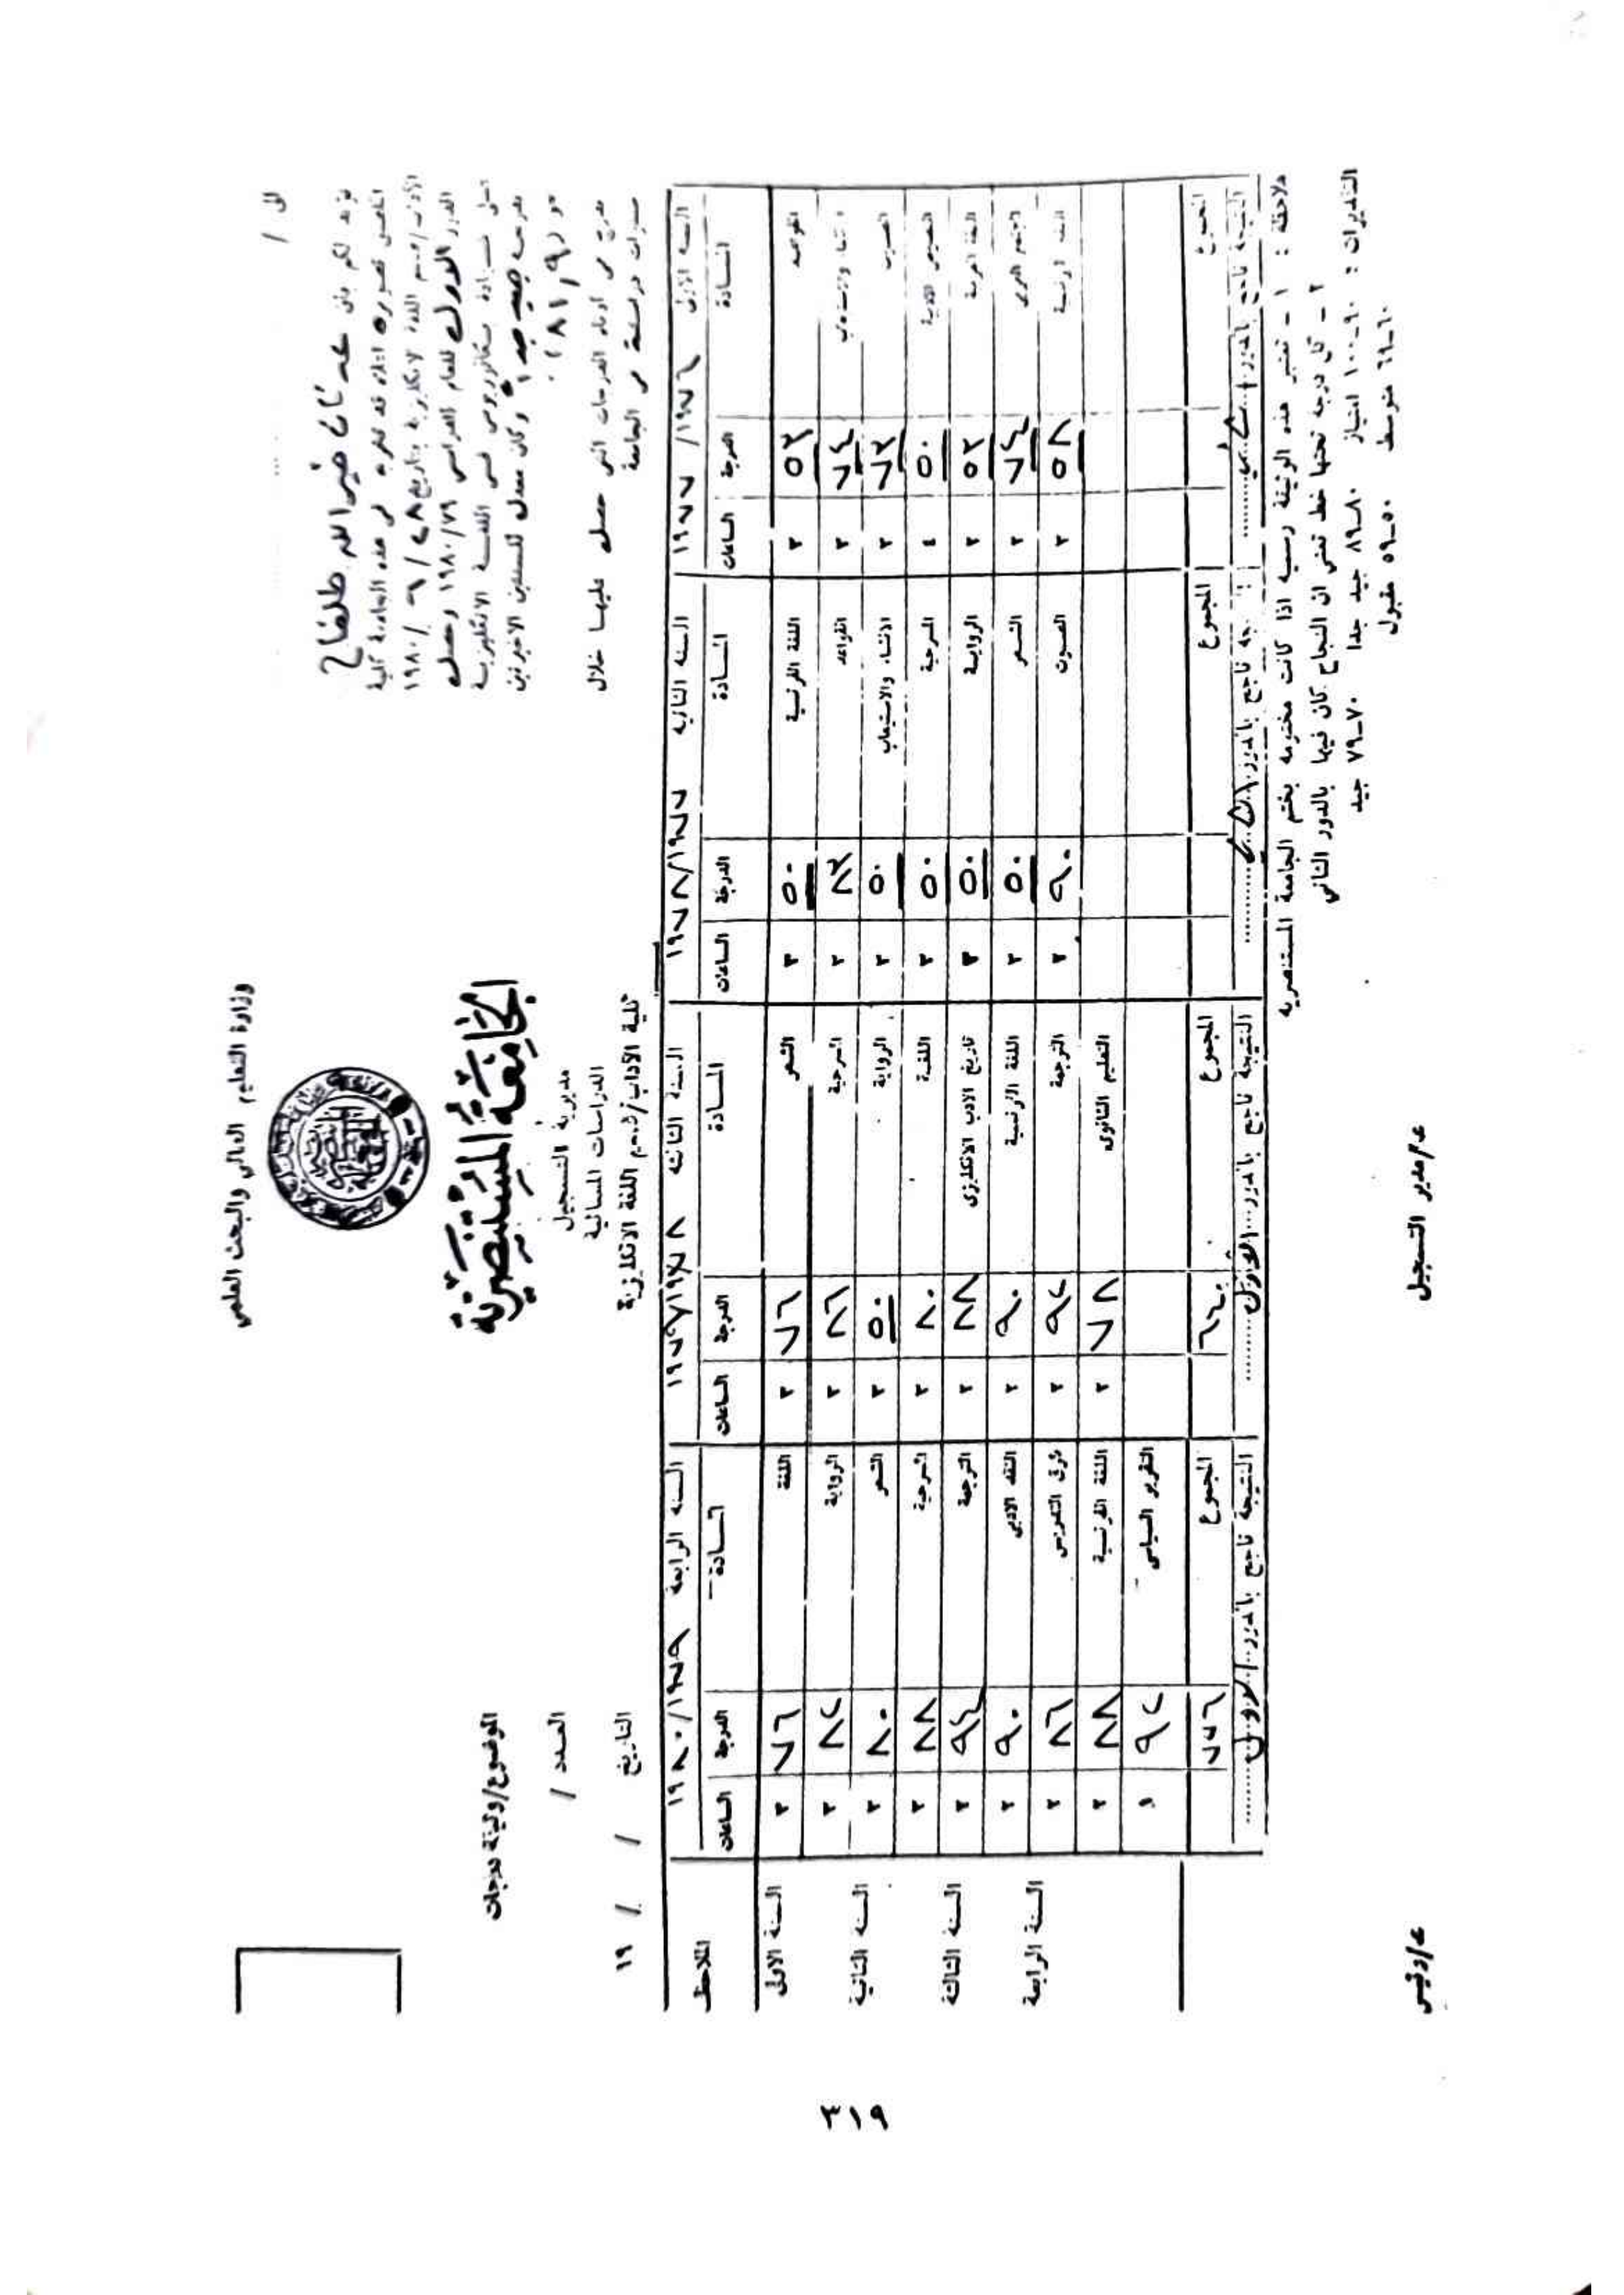 وزارة التعليم العالي والبحث العلمي
الجامعة المستنصرية
مديرية التسجيل
الدراسات المسائية
كلية الآداب/قسم اللغة الانكليزية
الى /
الموضوع/وثيقة درجات
العدد /
التاريخ / / ١٩
نؤيد لكم بان عدنان خير الله طلفاح
قد تخرج في هذه الجامعة كلية
الآداب/قسم اللغة الانكليزية بتاريخ ٢٨/٦/١٩٨٠
الدور الاول للعام الدراسي ١٩٨٠/٧٩ وحصل
على شهادة بكالوريوس في اللغة الانكليزية
بدرجة جيد جداً وكان معدل للسنتين الاخيرتين
هو (٨١,٩)
ندرج في ادناه الدرجات التي حصل عليها خلال
سنوات دراسته في الجامعة
السنه الاولى ١٩٧٦/ ١٩٧٧
المادة الدرجة الساعات
القواعد ٥٢ ٣
٧٤ ٢
٧٢ ٢
النصوص الادبية ٥٠ ٤
اللغة العربية ٥٢ ٢
٧٤ ٢
٥٨ ٢
المجموع
النتيجة ناجح بالدور
السنه الثانيه ١٩٧٧/١٩٧٨
المادة الدرجة الساعات
اللغة الفرنسية ٥٠ ٣
القواعد ٢
الانشاء والاستيعاب ٥٠ ٢
المسرحية ٥٠ ٣
الرواية ٥٠ ٣
الشعر ٥٠ ٢
الصوت ٩٠ ٢
المجموع
النتيجة ناجح بالدور
السنة الثالثه ١٩٧٨/١٩٧٩
المادة الدرجة الساعات
الشعر ٧٦ ٣
المسرحية ٨٦ ٣
الرواية ٥٠ ٣
اللغة ٨٠ ٣
تاريخ الادب الانكليزي ٨٨ ٢
اللغة الفرنسية ٩٠ ٢
الترجمة ٩٢ ٢
التعليم الثانوي ٧٨ ٢
المجموع ٦٤٠
النتيجة ناجح بالدور الاول
السنه الرابعة ١٩٧٩/١٩٨٠
المادة الدرجة الساعات
اللغة ٧٦ ٣
الرواية ٨٢ ٣
الشعر ٨٠ ٣
المسرحية ٨٨ ٣
الترجمة ٩٤ ٢
النقد الادبي ٩٠ ٢
طرق التدريس ٨٦ ٢
اللغة الفرنسية ٨٨ ٢
التقرير السياسي ٩٢ ١
المجموع ٧٧٦
النتيجة ناجح بالدور الاول
الملاحظ
السنة الاولى
السنه الثانية
السنة الثالثة
السنة الرابعة
ملاحظة : ١ - تعتبر هذه الوثيقة رسميه اذا كانت مختومه بختم الجامعة المستنصريه
٢ - كل درجة تحتها خط تعني ان النجاح كان فيها بالدور الثاني
التقديرات : ٩٠-١٠٠ امتياز ٨٠-٨٩ جيد جدا ٧٠-٧٩ جيد
٦٠-٦٩ متوسط ٥٠-٥٩ مقبول
ع/مدير التسجيل
٣١٩